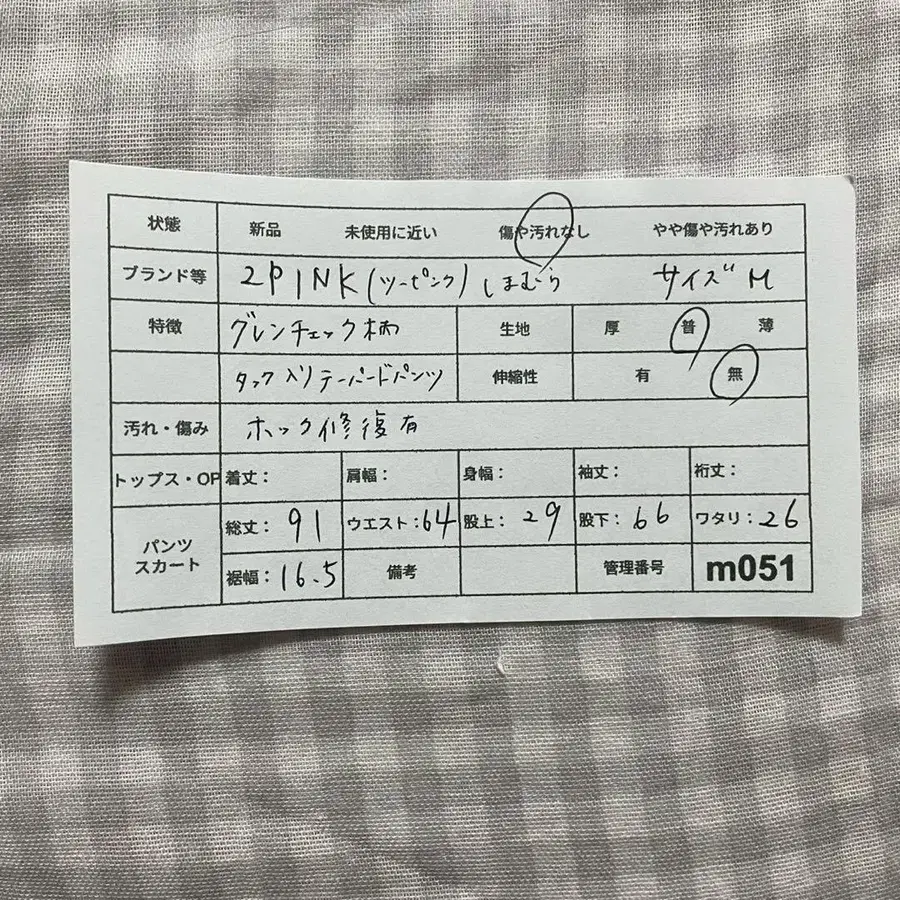 状態 新品 未使用に近い 傷や汚れなし やや傷や汚れあり
ブランド等 2PINK(ツーピンク)しまむら サイズM
特徴 グレンチェック柄 生地 厚 普 薄
タック入りテーパードパンツ 伸縮性 有 無
汚れ・傷み ホック修復有
トップス・OP 着丈: 肩幅: 身幅: 袖丈: 裄丈:
パンツ
スカート
総丈:91 ウエスト:64 股上:29 股下:66 ワタリ:26
裾幅:16.5 備考 管理番号 m051